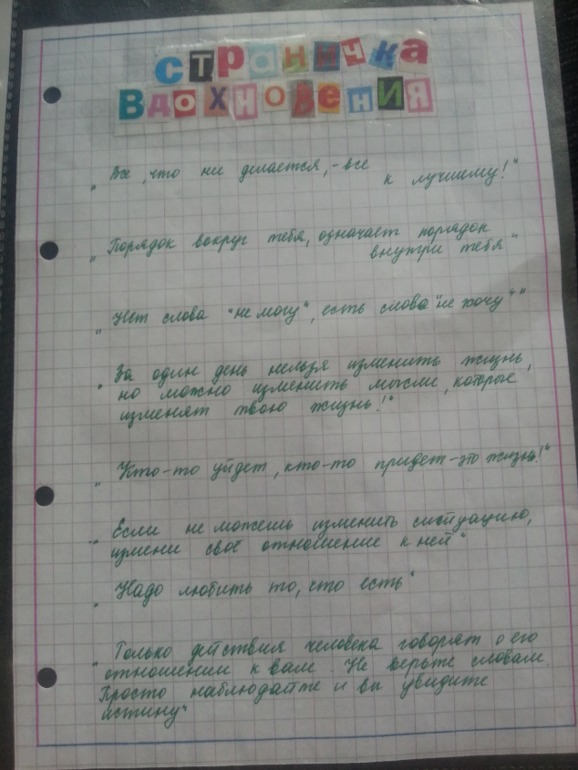 страничка
Вдохновения
„Все, что ни делается, - все
к лучшему!"
„Порядок вокруг тебя, означает порядок
внутри тебя"
„Нет слова "не могу", есть слова "не хочу""
„За один день нельзя изменить жизнь,
но можно изменить мысли, которые
изменят твою жизнь!"
„Кто-то уйдет, кто-то придет - это жизнь!"
„Если не можешь изменить ситуацию,
измени своё отношение к ней"
„Надо любить то, что есть"
„Только действия человека говорят о его
отношении к вам. Не верьте словам.
Просто наблюдайте и вы увидите
истину"